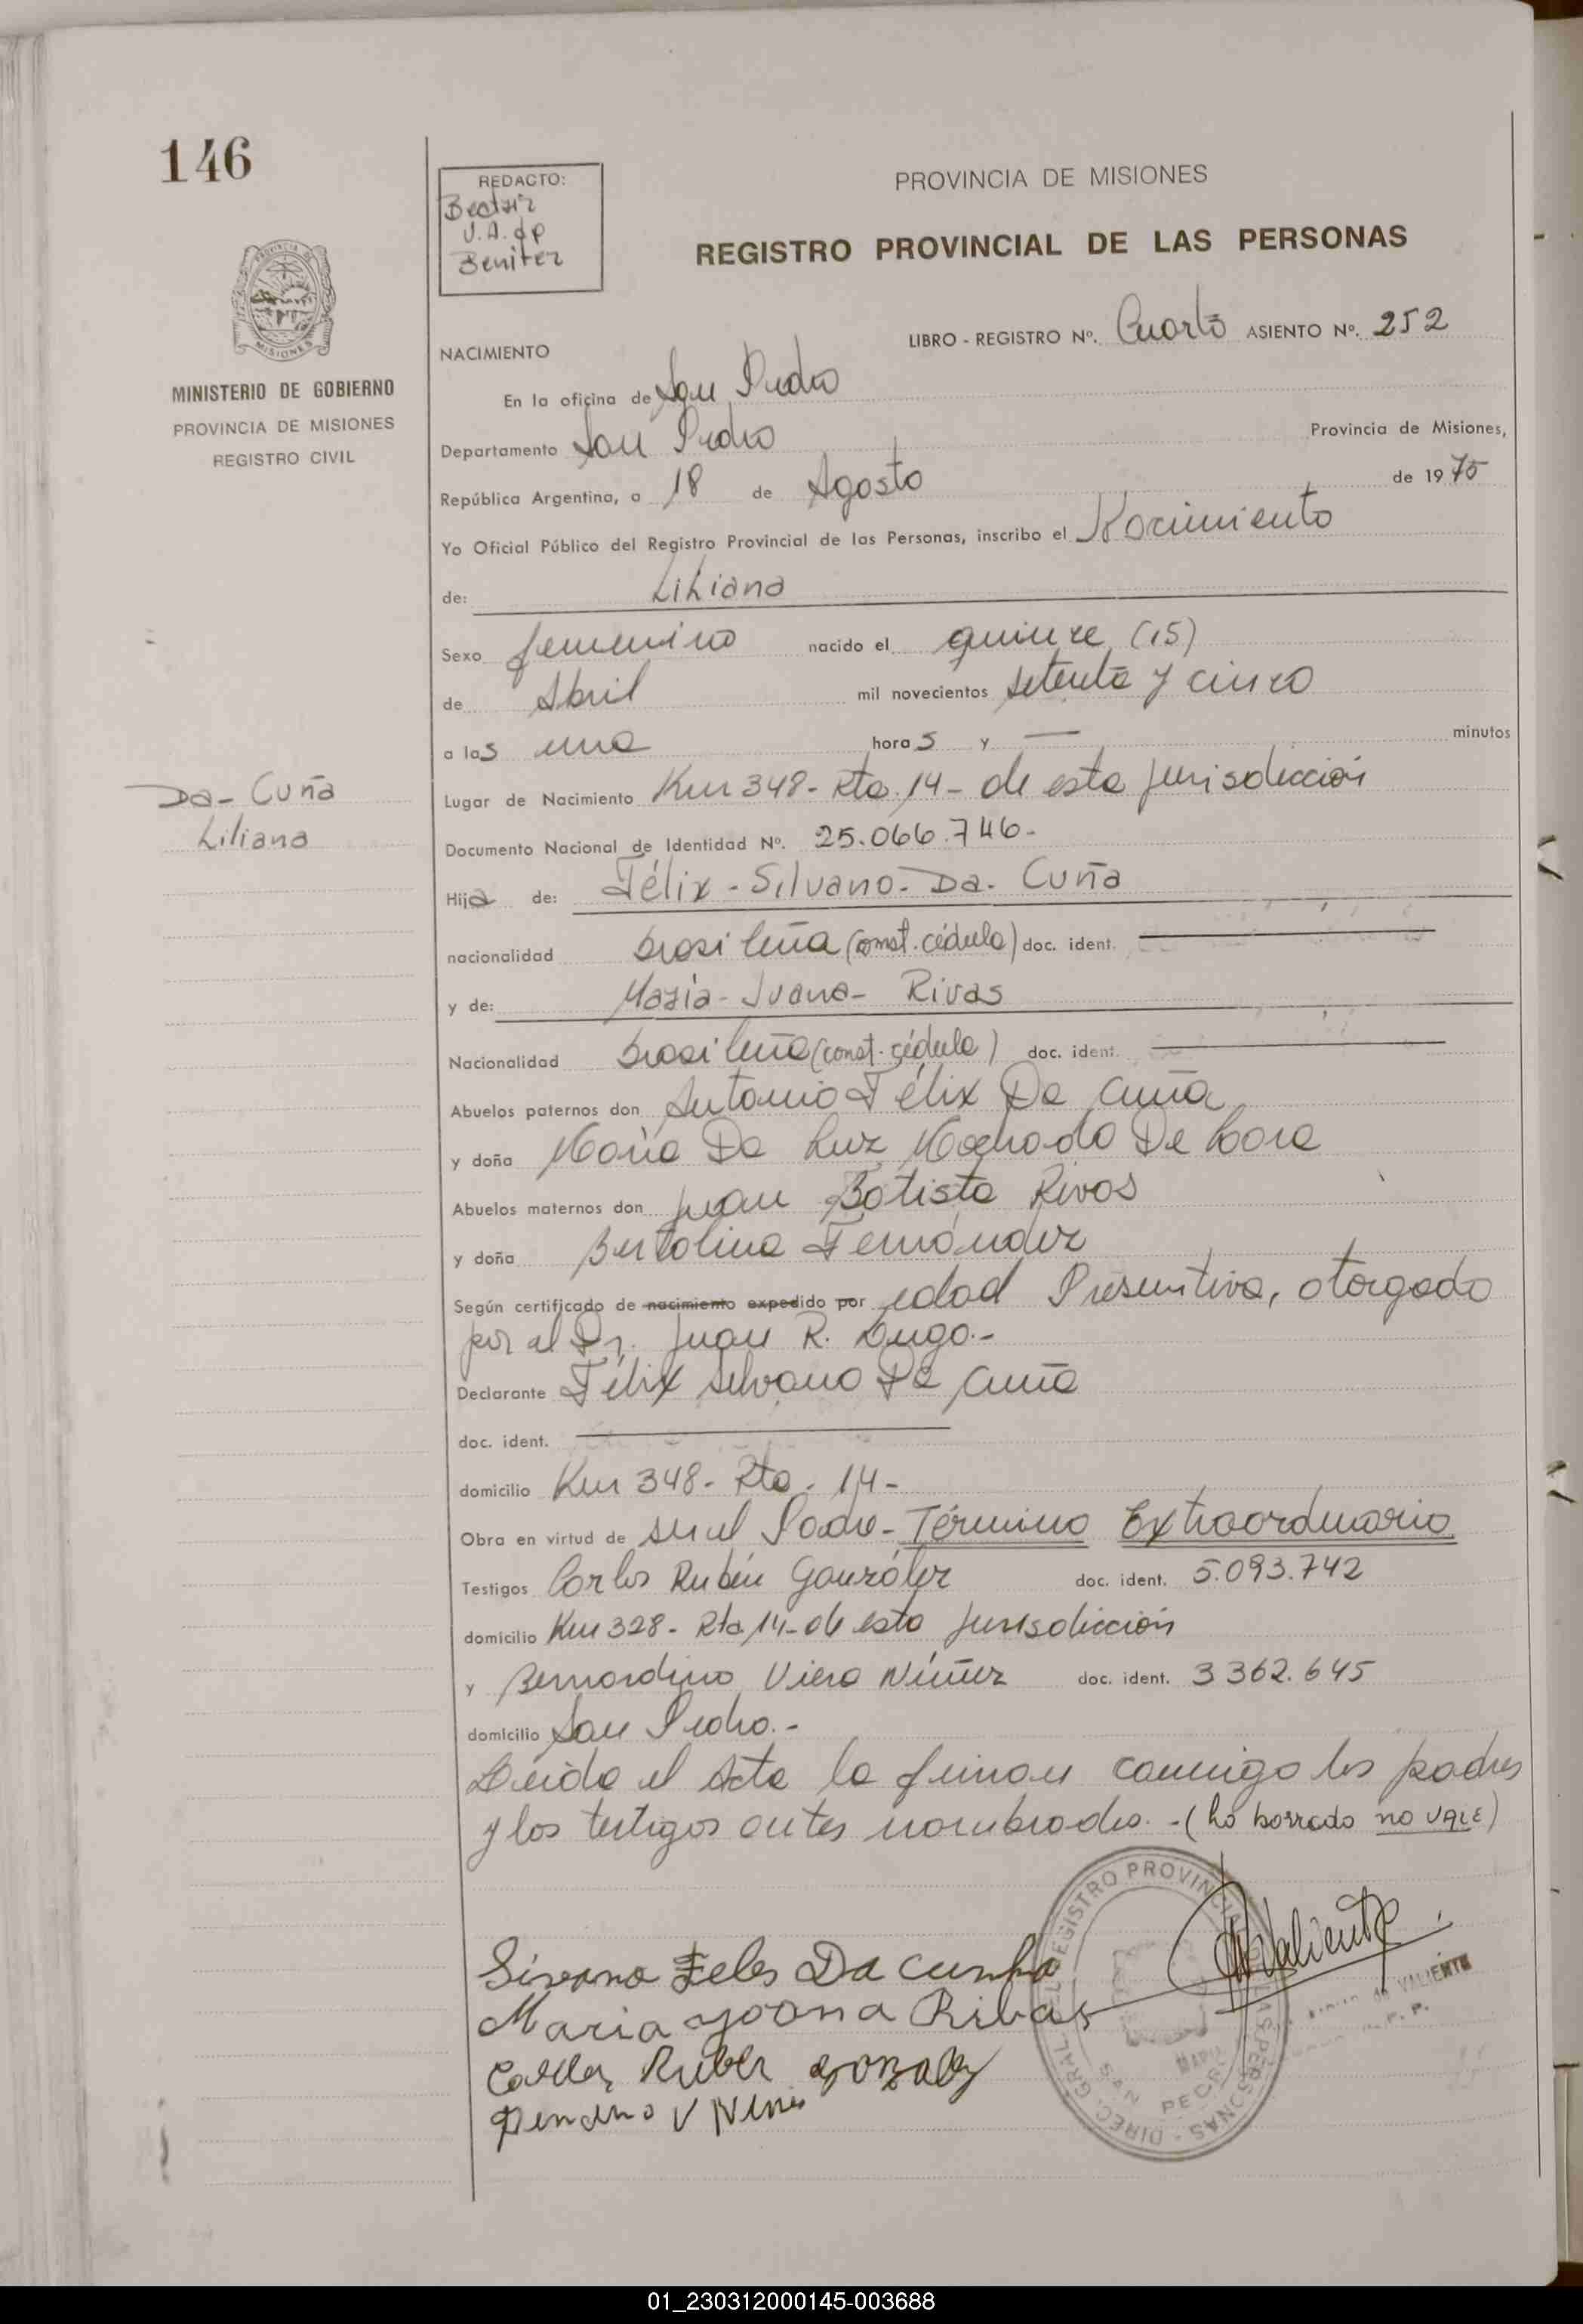 146
REDACTO:
Beatriz
V.A. de
Benitez
PROVINCIA DE MISIONES
REGISTRO PROVINCIAL DE LAS PERSONAS
MISIONES
MINISTERIO DE GOBIERNO
PROVINCIA DE MISIONES
REGISTRO CIVIL
LIBRO - REGISTRO Nº. Cuarto ASIENTO Nº. 252
NACIMIENTO
En la oficina de San Pedro
Departamento San Pedro Provincia de Misiones,
República Argentina, a 18 de Agosto de 1975
Yo Oficial Público del Registro Provincial de las Personas, inscribo el Nacimiento
de: Liliana
Sexo femenino nacido el quince (15)
de Abril mil novecientos setenta y cinco
a las una horas y — minutos
Lugar de Nacimiento Km 348- Rta. 14- de esta jurisdicción
Da- Cuña
Liliana
Documento Nacional de Identidad Nº. 25.066.746-
Hija de: Félix - Silvano- Da- Cuña
nacionalidad brasileña (const. cédula) doc. ident. —
y de: María- Juana- Rivas
Nacionalidad brasileña (const. cédula) doc. ident. —
Abuelos paternos don Antonio Félix Da Cuña
y doña María Da Luz Machado De Lara
Abuelos maternos don Juan Batista Rivas
y doña Bertolina Fernández
Según certificado de nacimiento expedido por edad Presuntiva, otorgado
por el Dr. Juan R. Lugo.-
Declarante Félix Silvano Da Cuña
doc. ident. —
domicilio Km 348- Rta. 14-
Obra en virtud de ser el Padre- Término Extraordinario
Testigos Carlos Rubén González doc. ident. 5.093.742
domicilio Km 328- Rta 14- de esta jurisdicción
y Bernardino Viera Núñez doc. ident. 3362.645
domicilio San Pedro.-
Leída el Acta la firman conmigo los padres
y los testigos antes nombrados. -(lo borrado no vale)
Maria Joana Ribas
DIREC. GRAL. DEL REGISTRO PROVINCIAL DE LAS PERSONAS
SAN PEDRO
Valiente
de VALIENTE
01_230312000145-003688